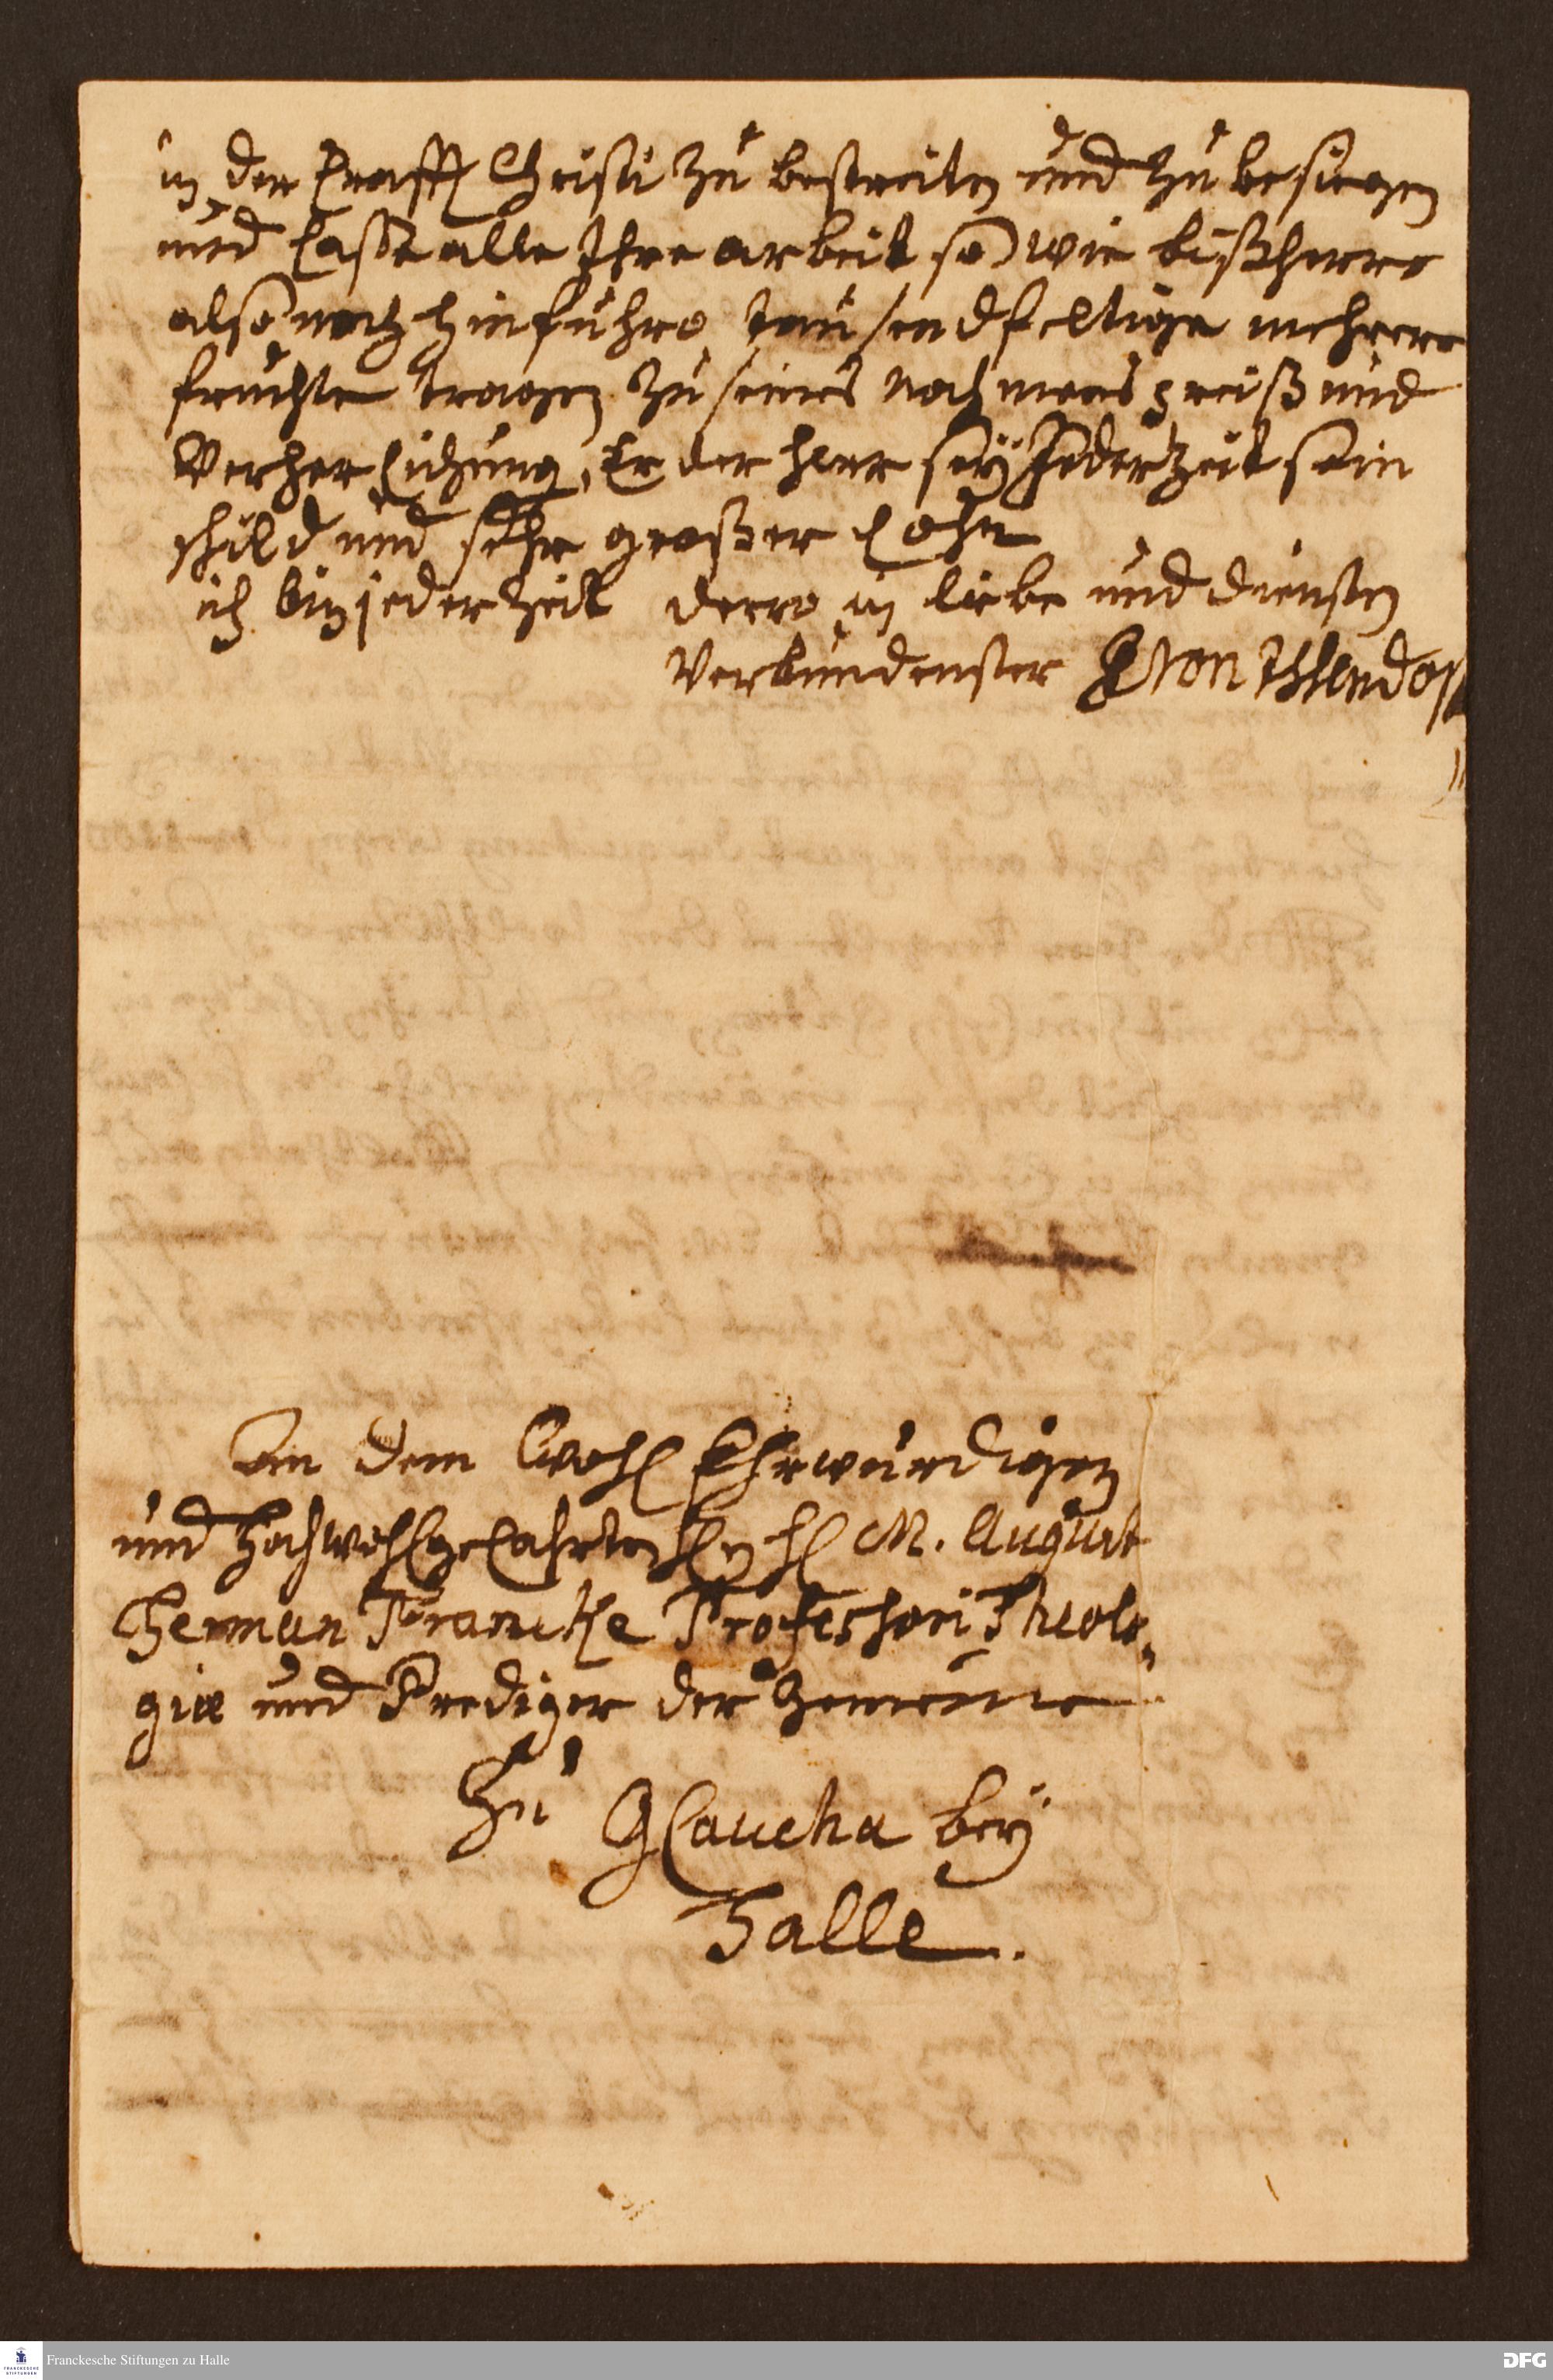 in der Krafft Christi zu bestreiten und zu besiegen
und lasse alle Ihre arbeit so wie bißherro
also noch hinführo tausendfeltige mehrere
früchte tragen zu seines nahmens preiß und
Verherlichung, Er der herr seÿ Jederzeit sein
schild und sehr großer lohn
ich bin jederzeit derro in liebe und diensten
Verbundenster von Ihlendorff
An dem Wohl Ehrwürdigen
und Hochwohlgelahrten H M. August
Herman Francke Professori Theolo-
giæ und Prediger der Gemeine
Zu Glaucha beÿ
Halle.
Franckesche Stiftungen zu Halle
DFG